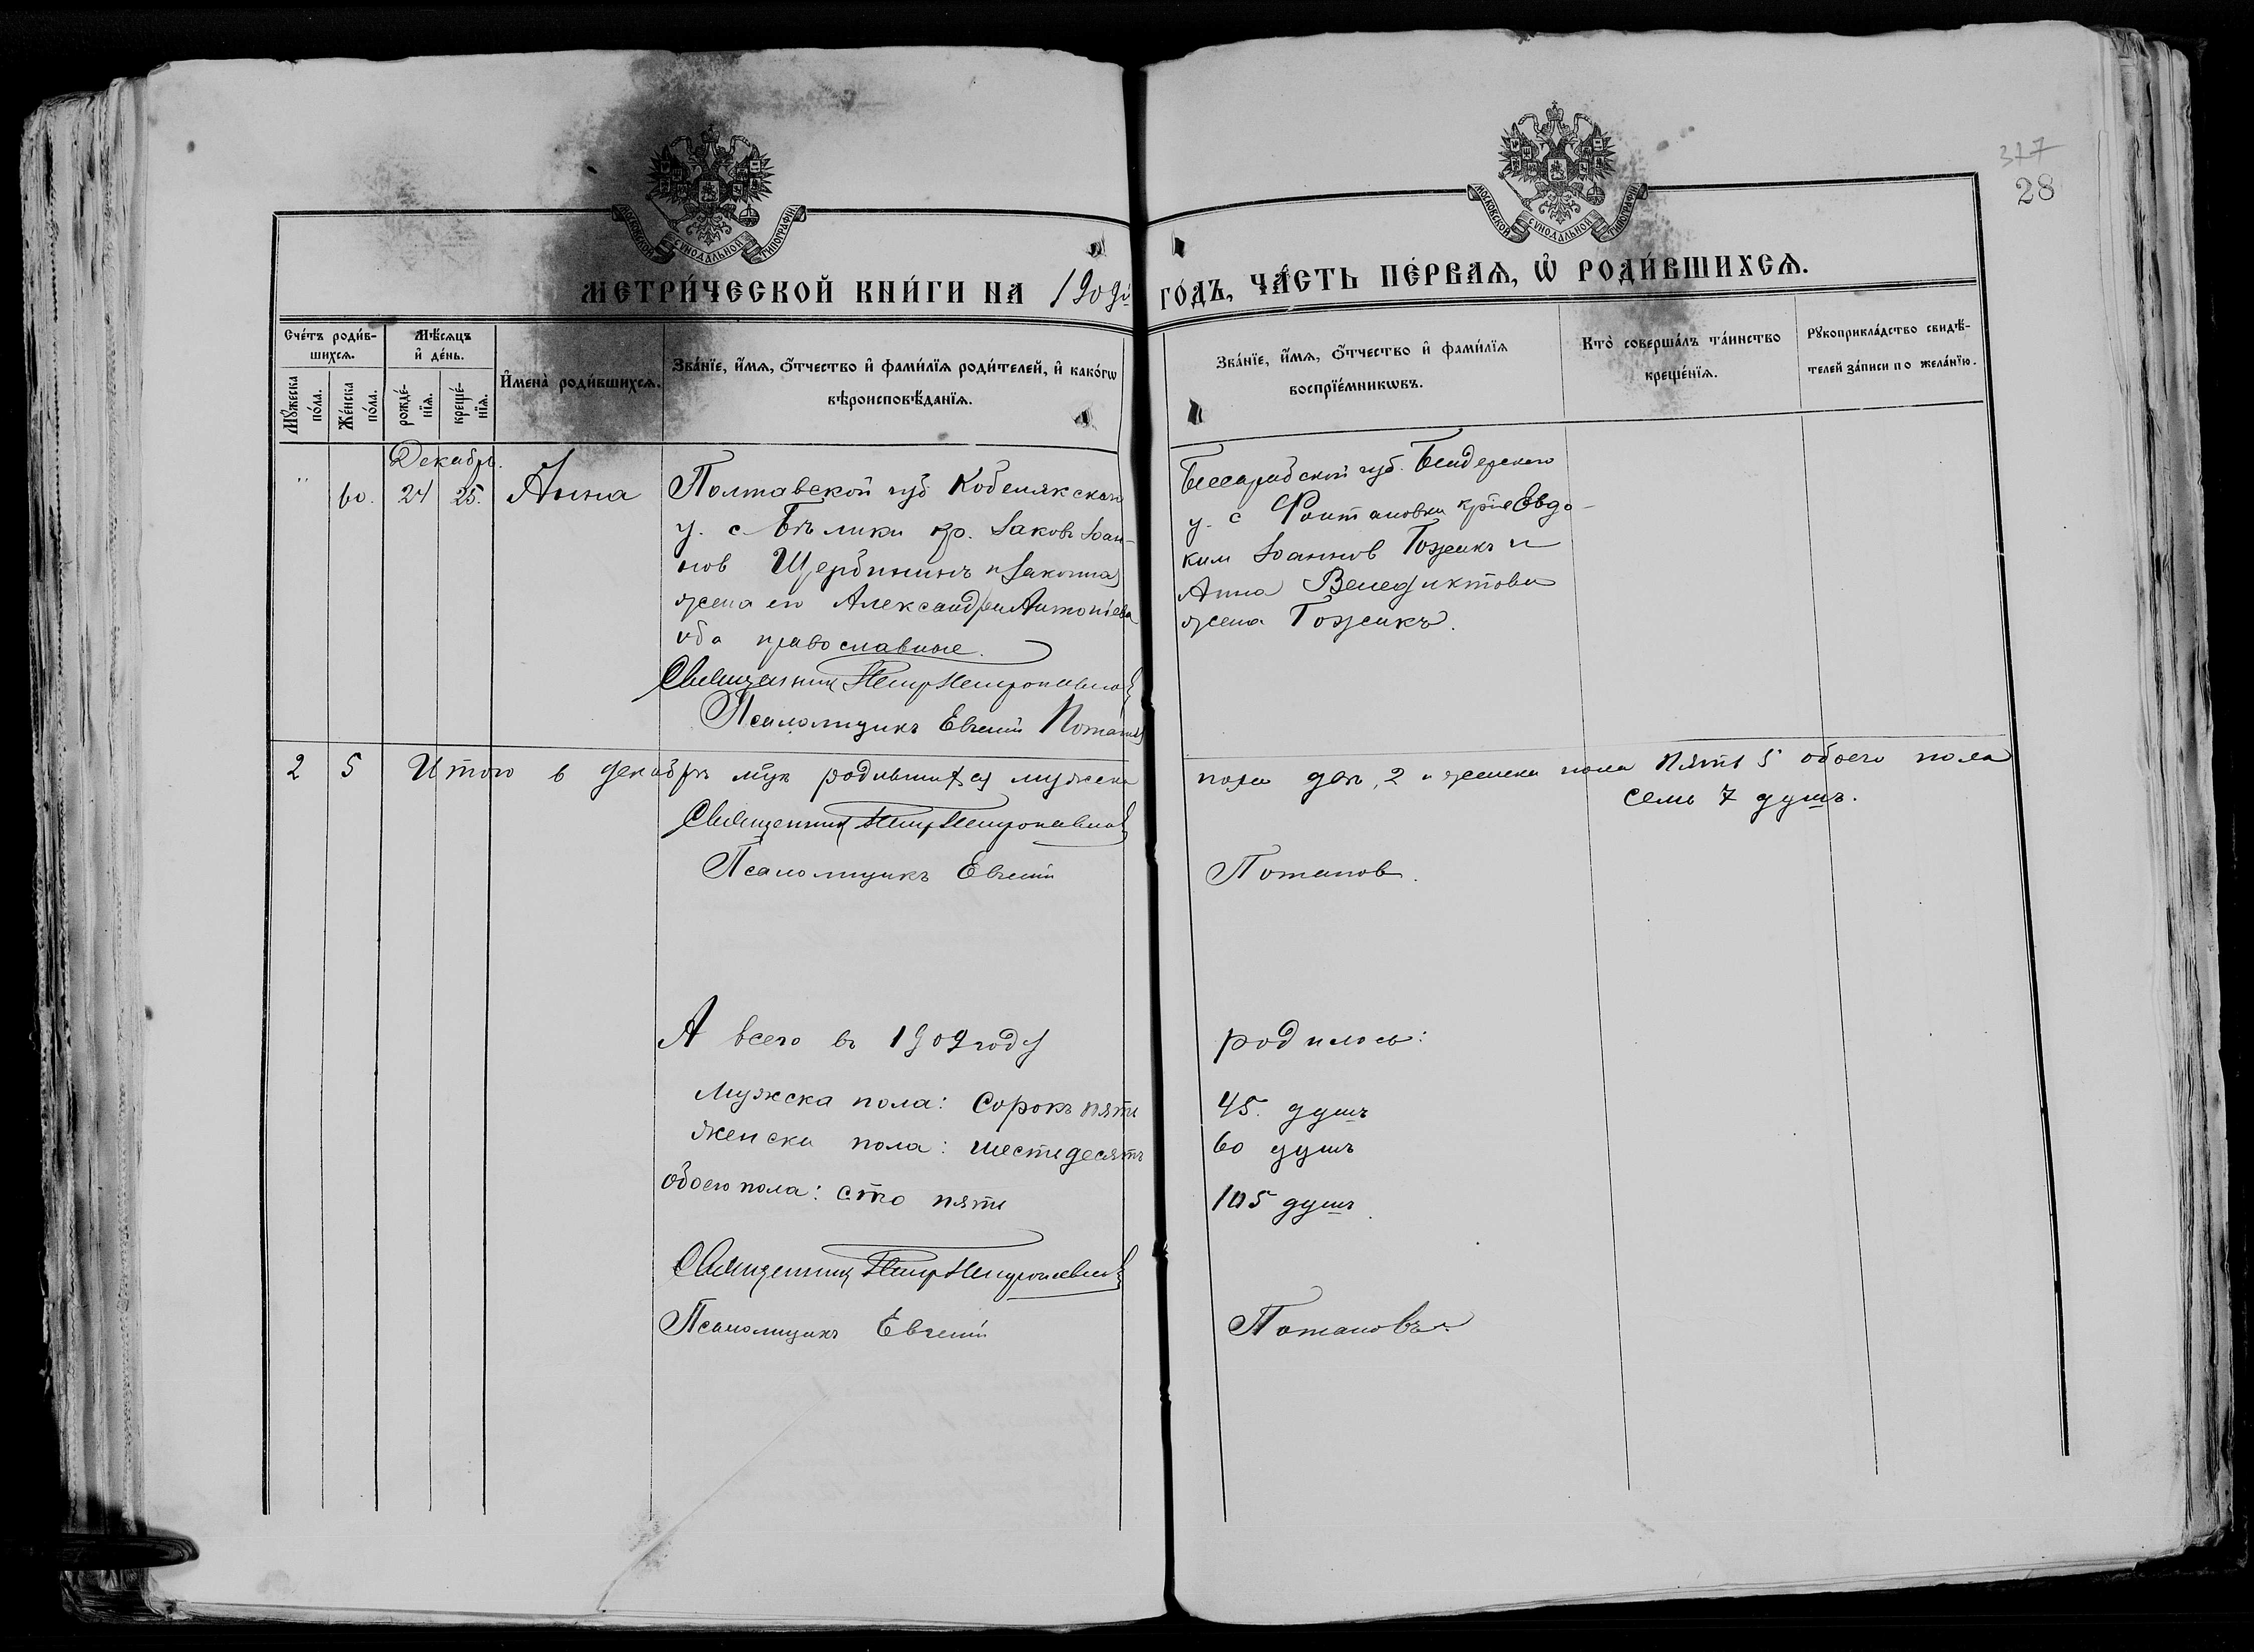 317
28
МОСКОВСКОЙ СѴНОДАЛЬНОЙ ТИПОГРАФІИ
МОСКОВСКОЙ СѴНОДАЛЬНОЙ ТИПОГРАФІИ
МЕТРИ́ЧЕСКОЙ КНИ́ГИ НА 1909й ГО́ДЪ, ЧА́СТЬ ПЕ́РВАѦ, Ѽ РОДИ́ВШИХСѦ.
Сче́тъ роди́в-
шихсѧ.
Мꙋ́жеска по́ла.
Же́нска по́ла.
Мѣ́сѧцъ
и҆ де́нь.
рожде́-
нїѧ.
креще́-
нїѧ.
И҆мена̀ роди́вшихсѧ.
Зва́нїе, и҆́мѧ, ѻ҆́тчество и҆ фами́лїѧ роди́телей, и҆ како́гѡ
вѣроисповѣ́данїѧ.
Зва́нїе, и҆́мѧ, ѻ҆́тчество и҆ фами́лїѧ
воспрїе́мникѡвъ.
Кто̀ соверша́лъ та́инство
креще́нїѧ.
Рꙋкоприкла́дство свидѣ́-
телей за́писи по жела́нїю.
Декабрь.
" 60. 24 25. Анна
Полтавской губ Кобелякскаго
у. с Бѣлики кр. Іаковъ Іоан-
нов Щербининъ и законная
жена его Александра Антоніева
оба православные.
Священник Петр Петропавлов
Псаломщикъ Евгеній Потапов
Бессарабской губ. Бендерскаго
у. с Фонтановки кр-не Евдо-
ким Іоаннов Гожикъ и
Анна Венедиктова
жена Гожикъ.
2 5 Итого в декабрѣ мцѣ родившихся мужска пола два, 2 и женска пола пять 5 обоего пола
семь 7 душъ.
Священник Петр Петропавлов
Псаломщикъ Евгеній Потапов.
А всего въ 1909 году родилось:
Мужска пола: сорокъ пять 45. душъ
женска пола: шестьдесятъ 60 душъ
обоего пола: сто пять 105 душъ.
Священник Петр Петропавлов
Псаломщикъ Евгеній Потаповъ.